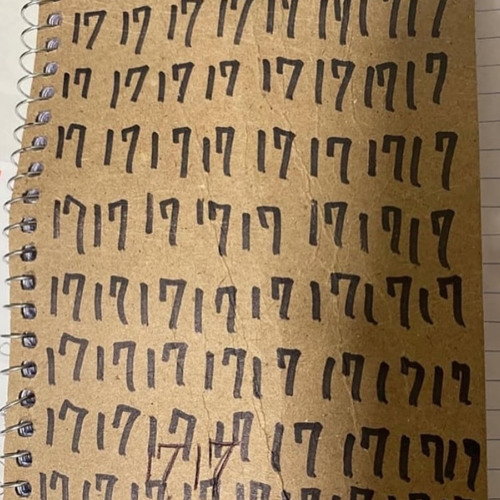 17 17 17 17 17 17 17 17
17 17 17 17 17 17 17 17
17 17 17 17 17 17 17 17
17 17 17 17 17 17 17 17
17 17 17 17 17 17 17 17
17 17 17 17 17 17 17 17
17 17 17 17 17 17 17 17
17 17